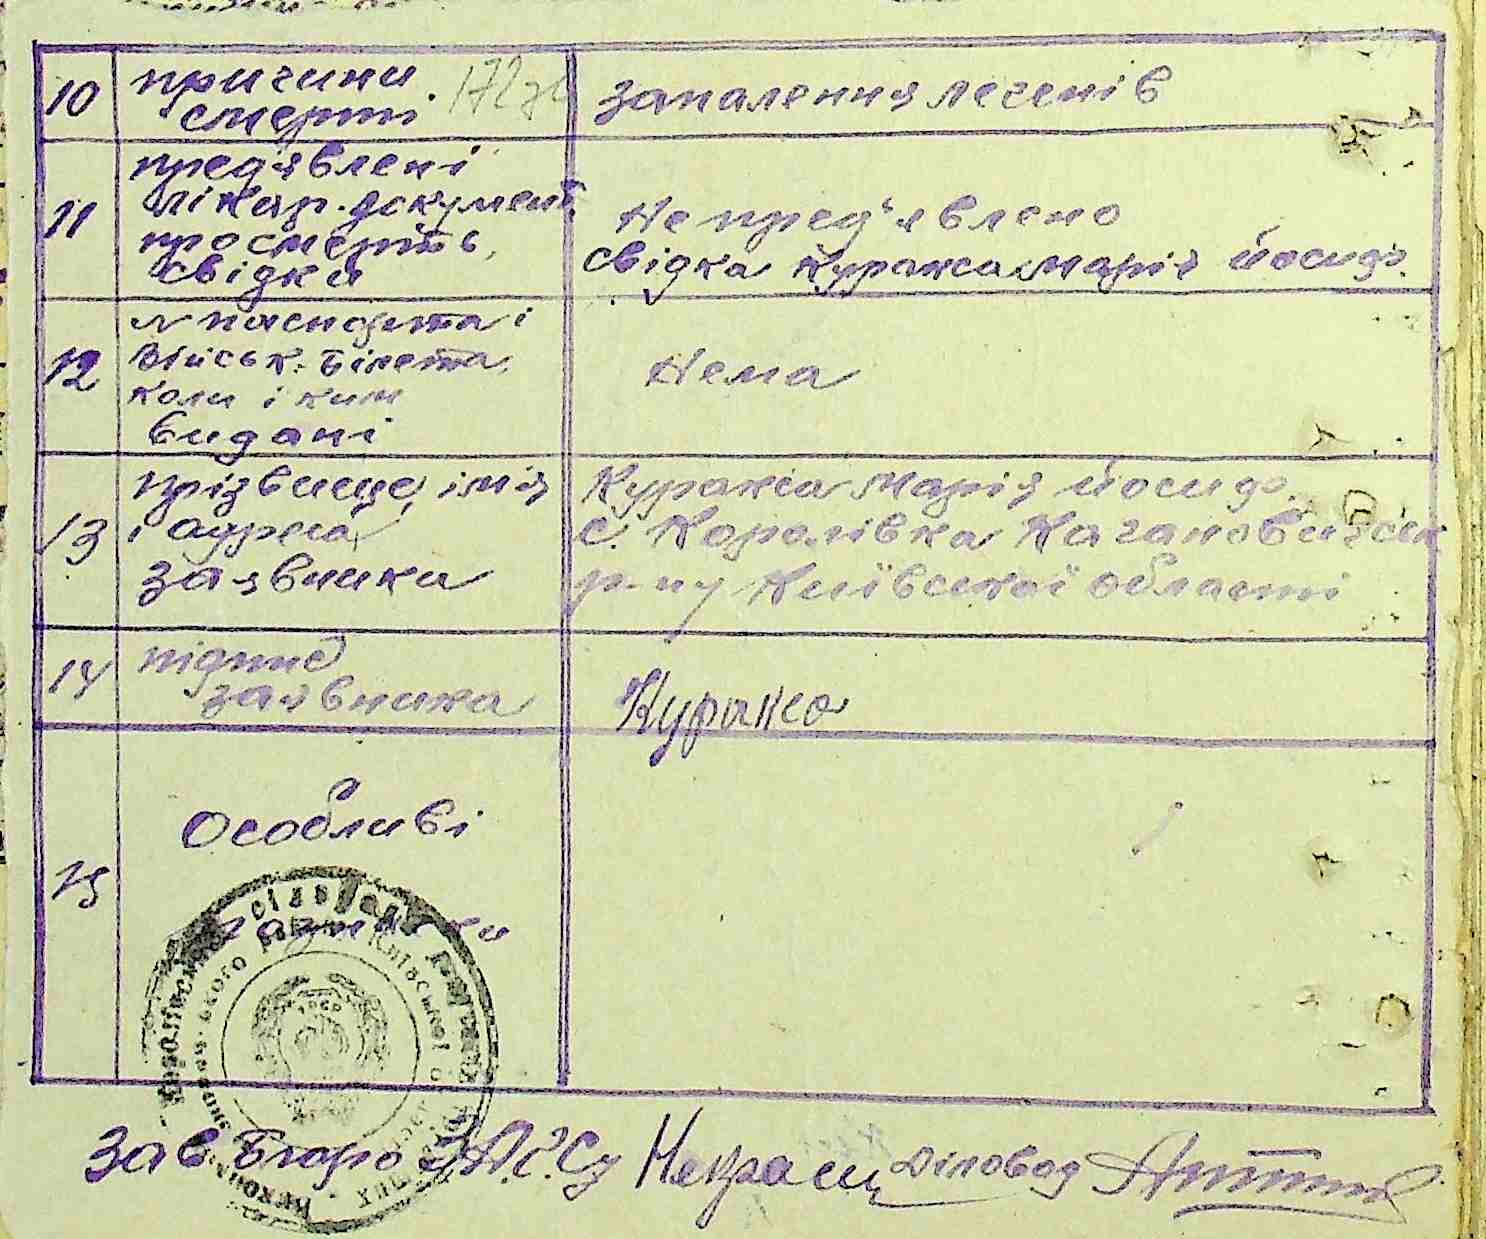 10
причини
смерти
запалення легенів
11
предявлені
лікар. документ.
про смерть,
свідки
Не пред'явлено
свідка Куракса Марія йосиф.
12
№ паспорта і
Військ. білета,
коли і ким
видані
Нема
13
прізвище, імія
і адреса
заявника
Куракса Марія йосиф.
с. Королівка Кагановицьк
р-ну Київської області
14
підпис
заявника
Куракса
15
Особливі
Зав. Бюро ЗАГСу Некраш Діловод